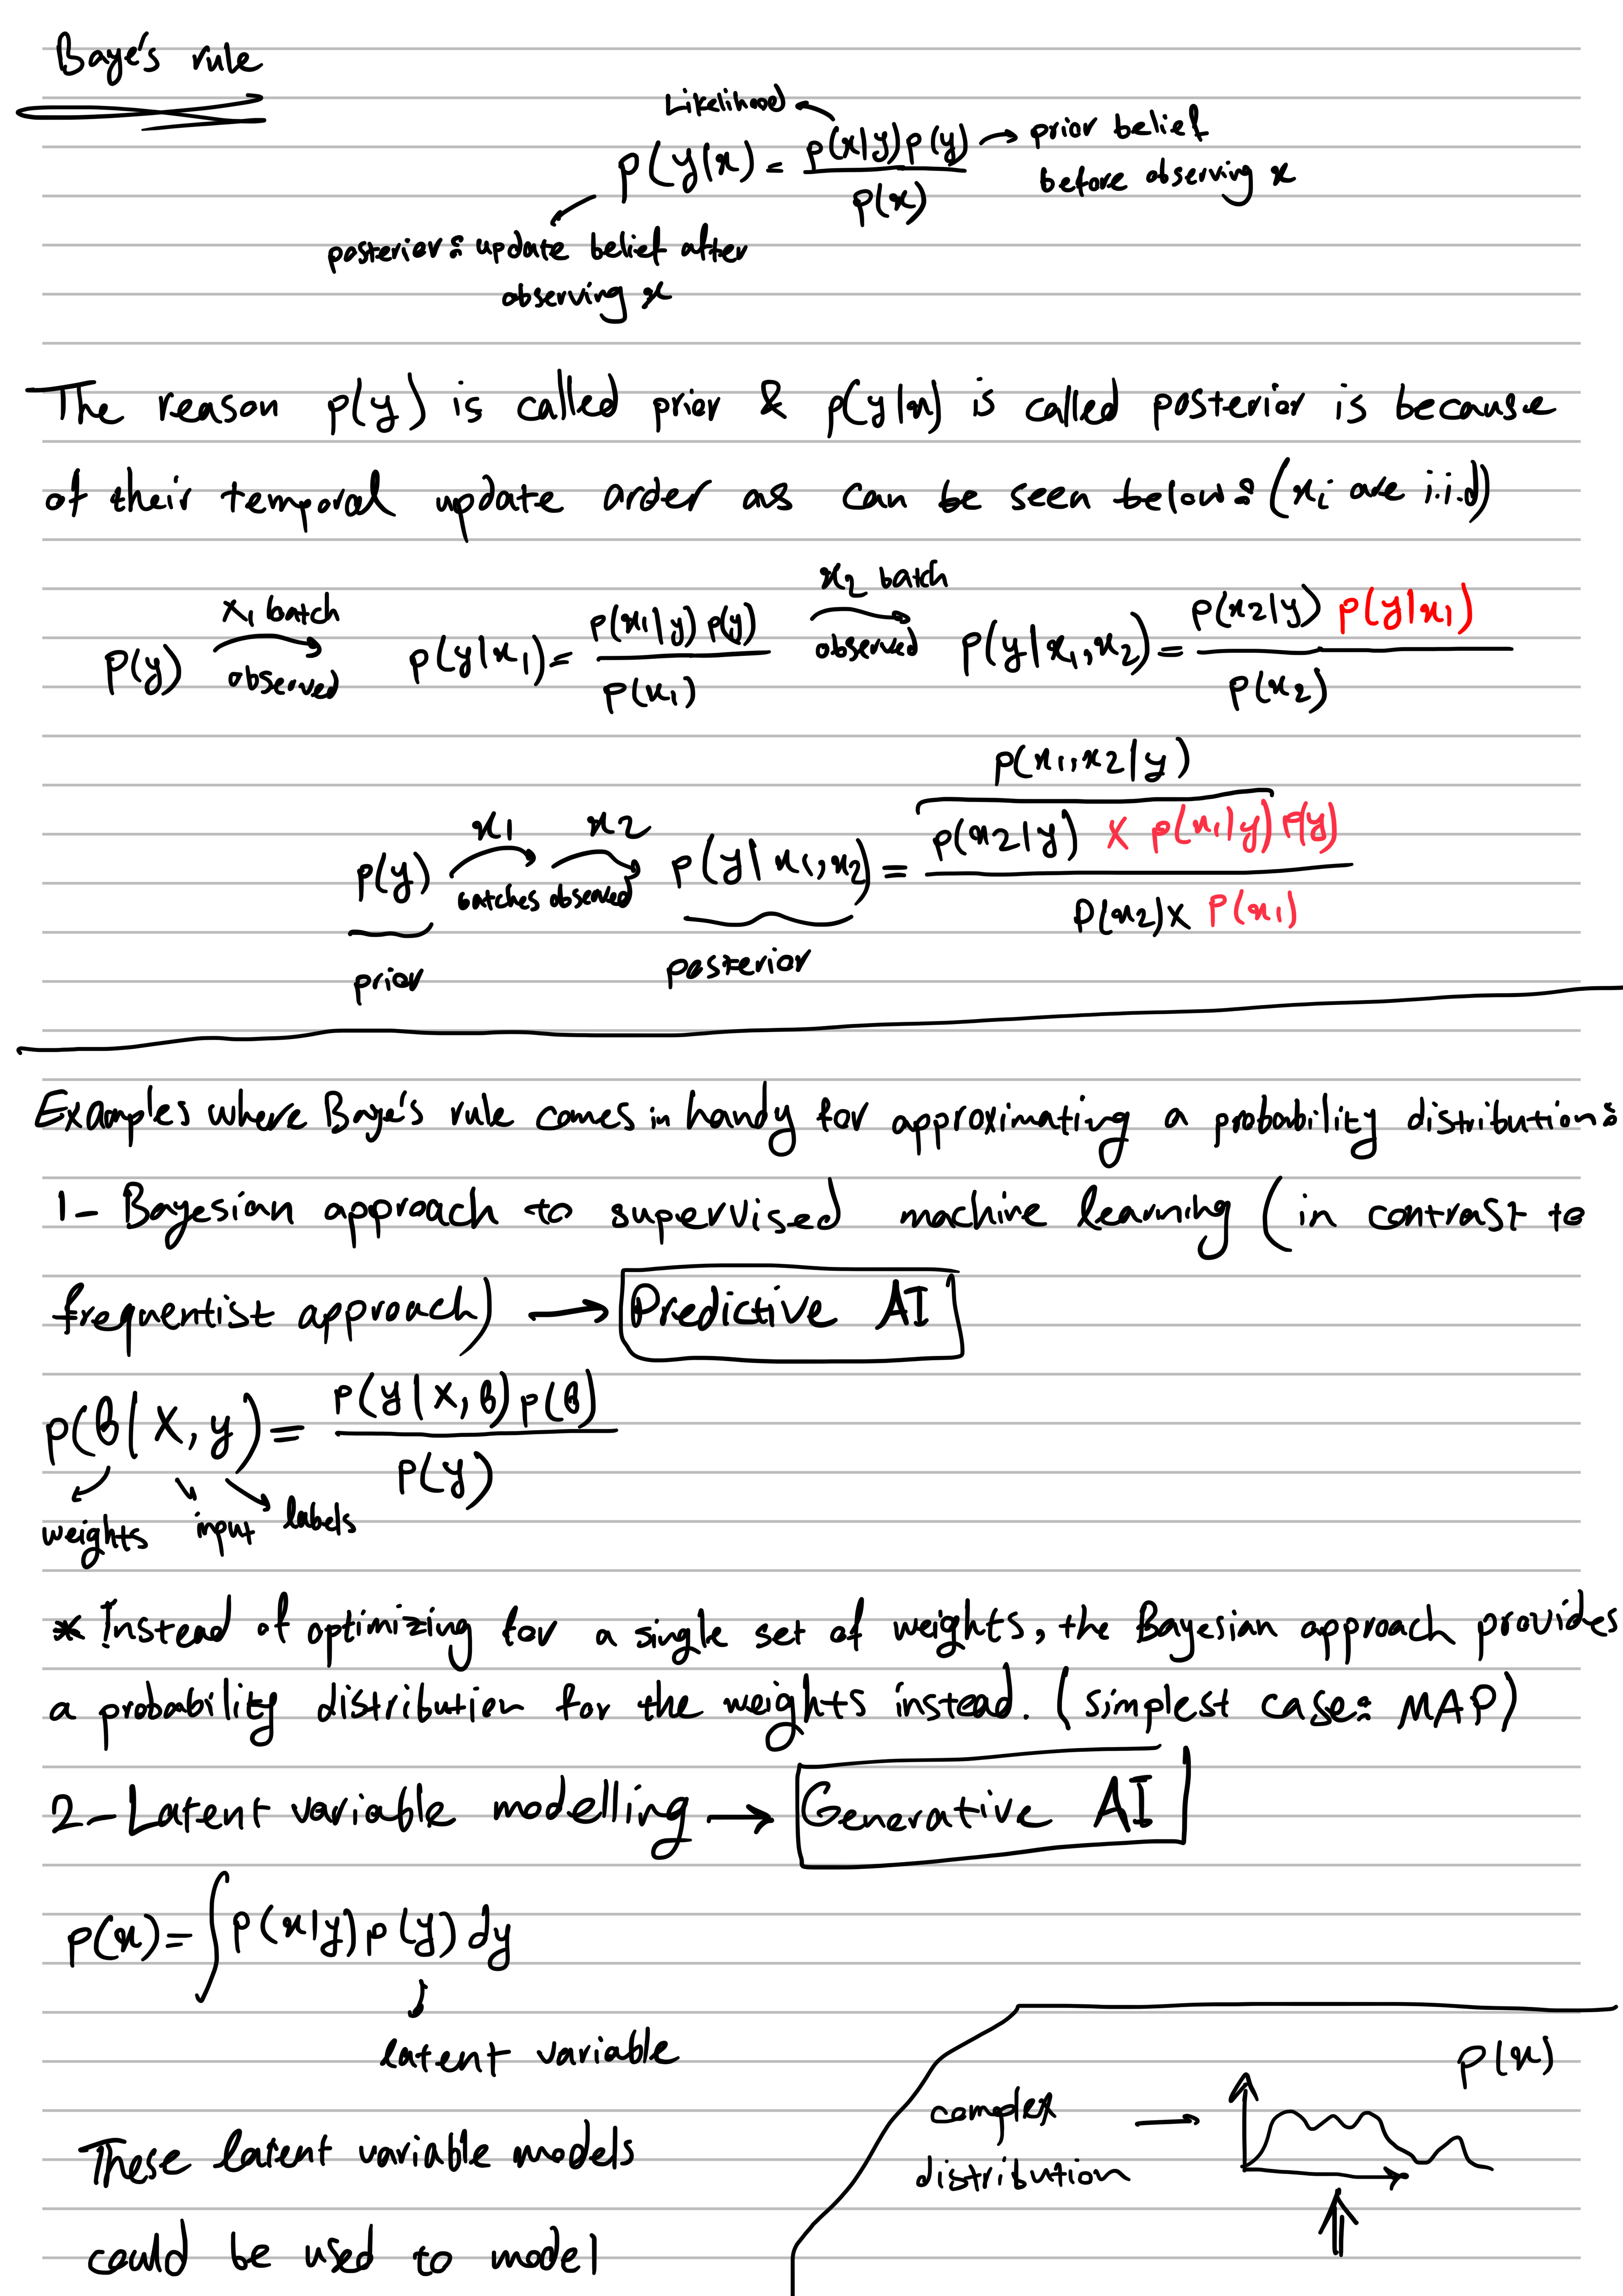 Baye's rule
Likelihood
p(y|x) = p(x|y) p(y) / p(x)
prior belief
before observing x
posterior: update belief after
observing x
The reason p(y) is called prior & p(y|x) is called posterior is because
of their temporal update order as can be seen below: (xi are i.i.d)
p(y) x1 batch observed p(y|x1) = p(x1|y) p(y) / p(x1) x2 batch observed p(y|x1,x2) = p(x2|y) p(y|x1) / p(x2)
p(x1,x2|y)
p(y) x1 x2 batches observed p(y|x1,x2) = p(x2|y) x p(x1|y) p(y) / p(x2) x p(x1)
prior posterior
Examples where Baye's rule comes in handy for approximating a probability distribution:
1- Bayesian approach to supervised machine learning (in contrast to
frequentist approach) → Predictive AI
p(θ|X,y) = p(y|X,θ) p(θ) / p(y)
weights input labels
* Instead of optimizing for a single set of weights, the Bayesian approach provides
a probability distribution for the weights instead. (simplest case: MAP)
2- Latent variable modelling → Generative AI
p(x) = ∫ p(x|y) p(y) dy
latent variable
p(x)
complex →
distribution
These latent variable models
could be used to model